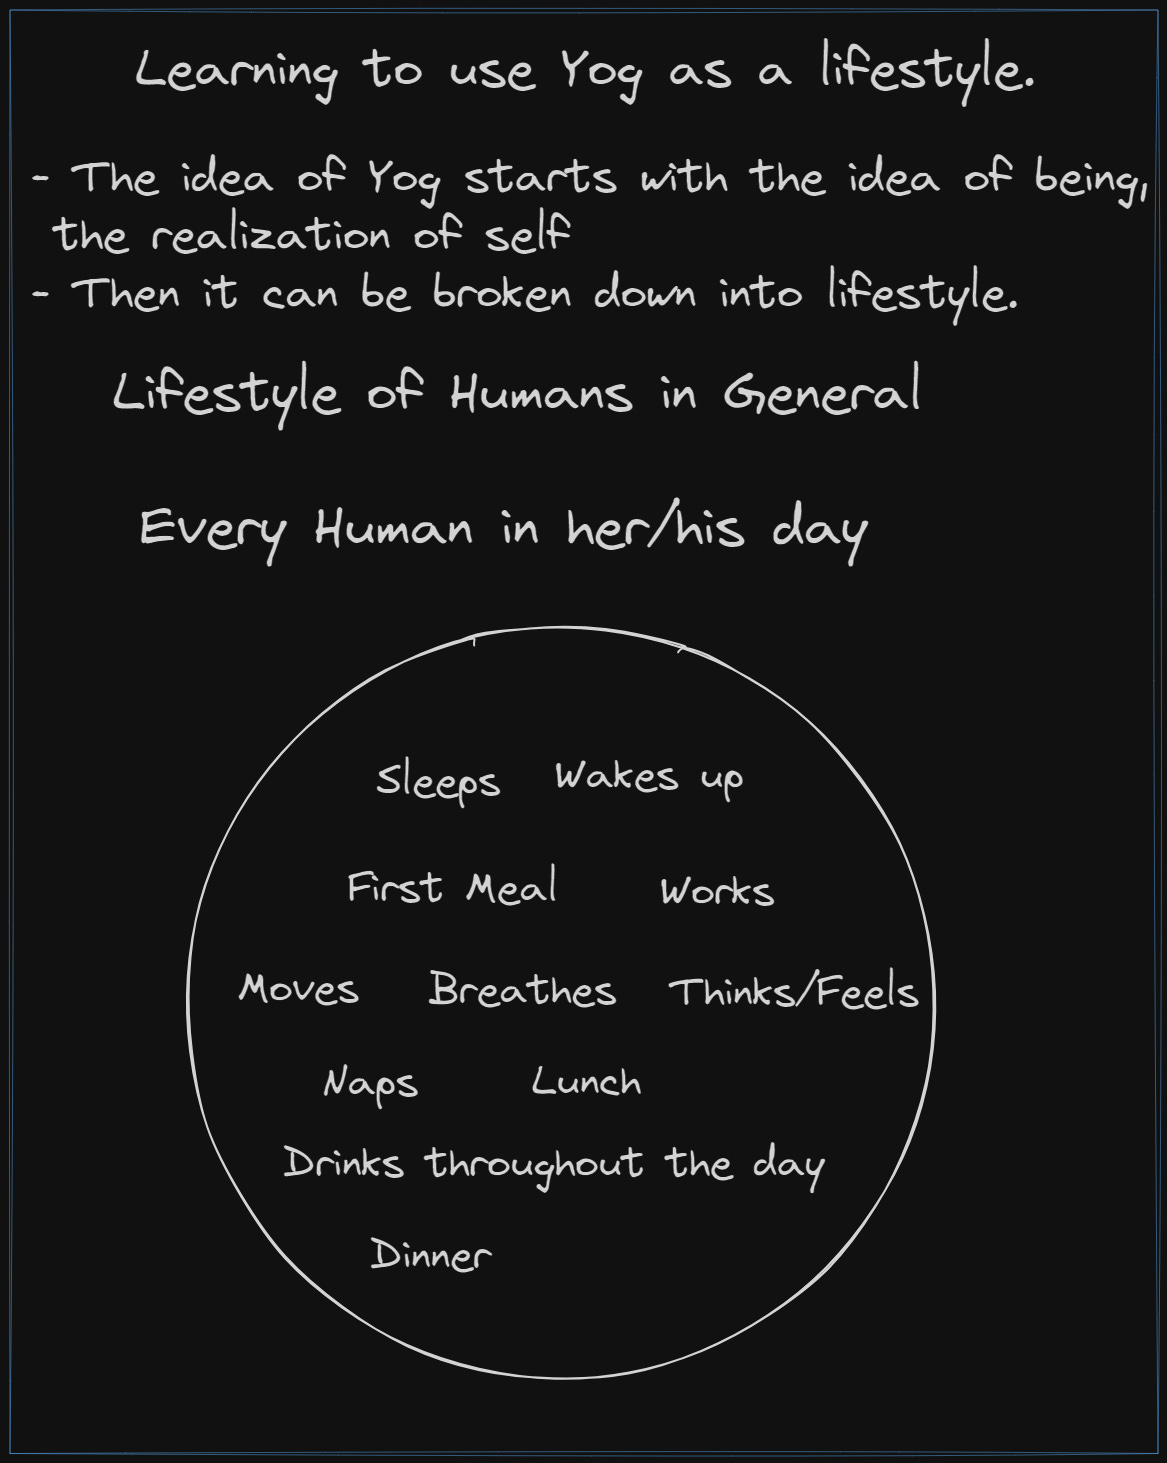 Learning to use Yog as a lifestyle.
- The idea of Yog starts with the idea of being,
the realization of self
- Then it can be broken down into lifestyle.
Lifestyle of Humans in General
Every Human in her/his day
Sleeps Wakes up
First Meal Works
Moves Breathes Thinks/Feels
Naps Lunch
Drinks throughout the day
Dinner